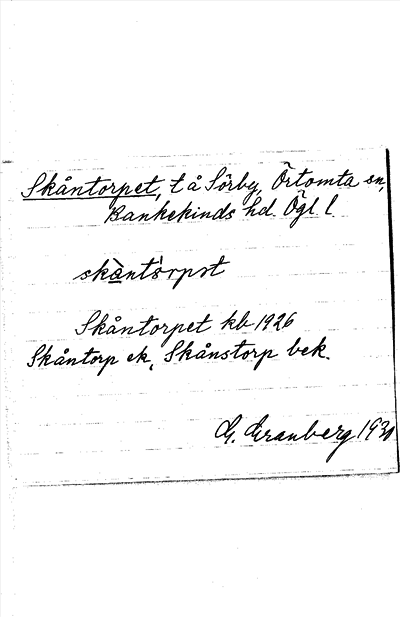 Skåntorpet, t å Sörby, Örtomta sn,
Bankekinds hd. Ögl l
Skåntorpet kb 1926
Skåntorp ek, Skånstorp bek.
G. Granberg 1930